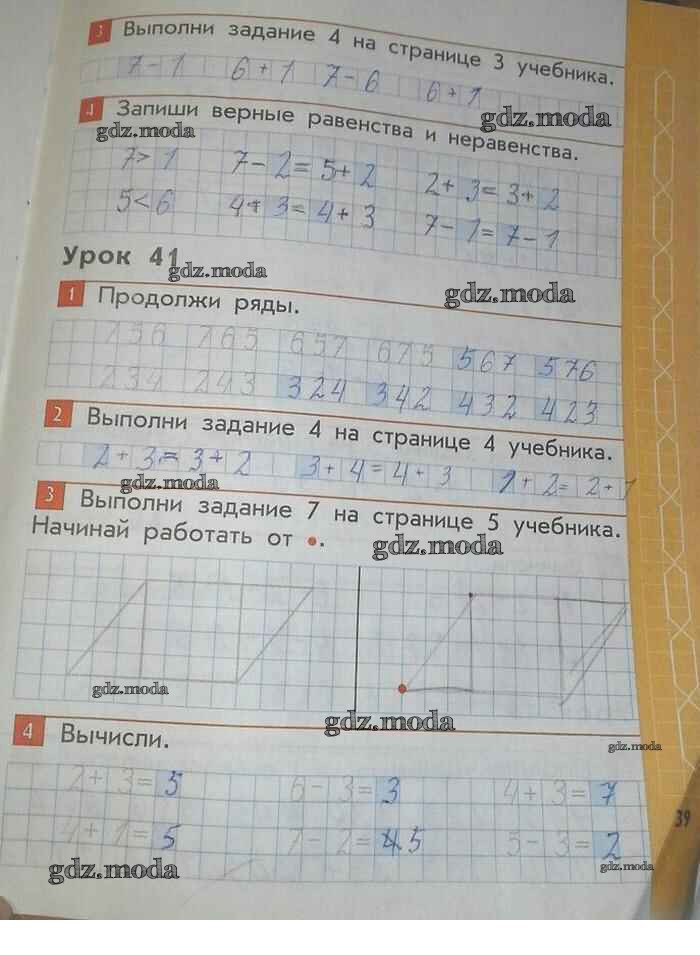 3 Выполни задание 4 на странице 3 учебника.
7-1 6+1 7-6 6+1
gdz.moda
4 Запиши верные равенства и неравенства.
gdz.moda
7>1 7-2=5+2 2+3=3+2
5<6 4+3=4+3 7-1=7-1
Урок 41
gdz.moda
gdz.moda
1 Продолжи ряды.
756 765 657 675 567 576
234 243 324 342 432 423
2 Выполни задание 4 на странице 4 учебника.
2+3=3+2 3+4=4+3 1+2=2+1
gdz.moda
3 Выполни задание 7 на странице 5 учебника.
Начинай работать от •.
gdz.moda
gdz.moda
gdz.moda
4 Вычисли.
gdz.moda
2+3=5 6-3=3 4+3=7
39
4+1=5 7-2=5 5-3=2
gdz.moda
gdz.moda